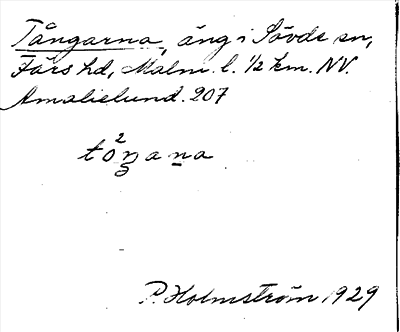 Tångarna, äng i Sövde sn,
Färs hd, Malm. l. ½ km. NV.
Amalielund. 207
to²ŋana
P. Holmström 1929